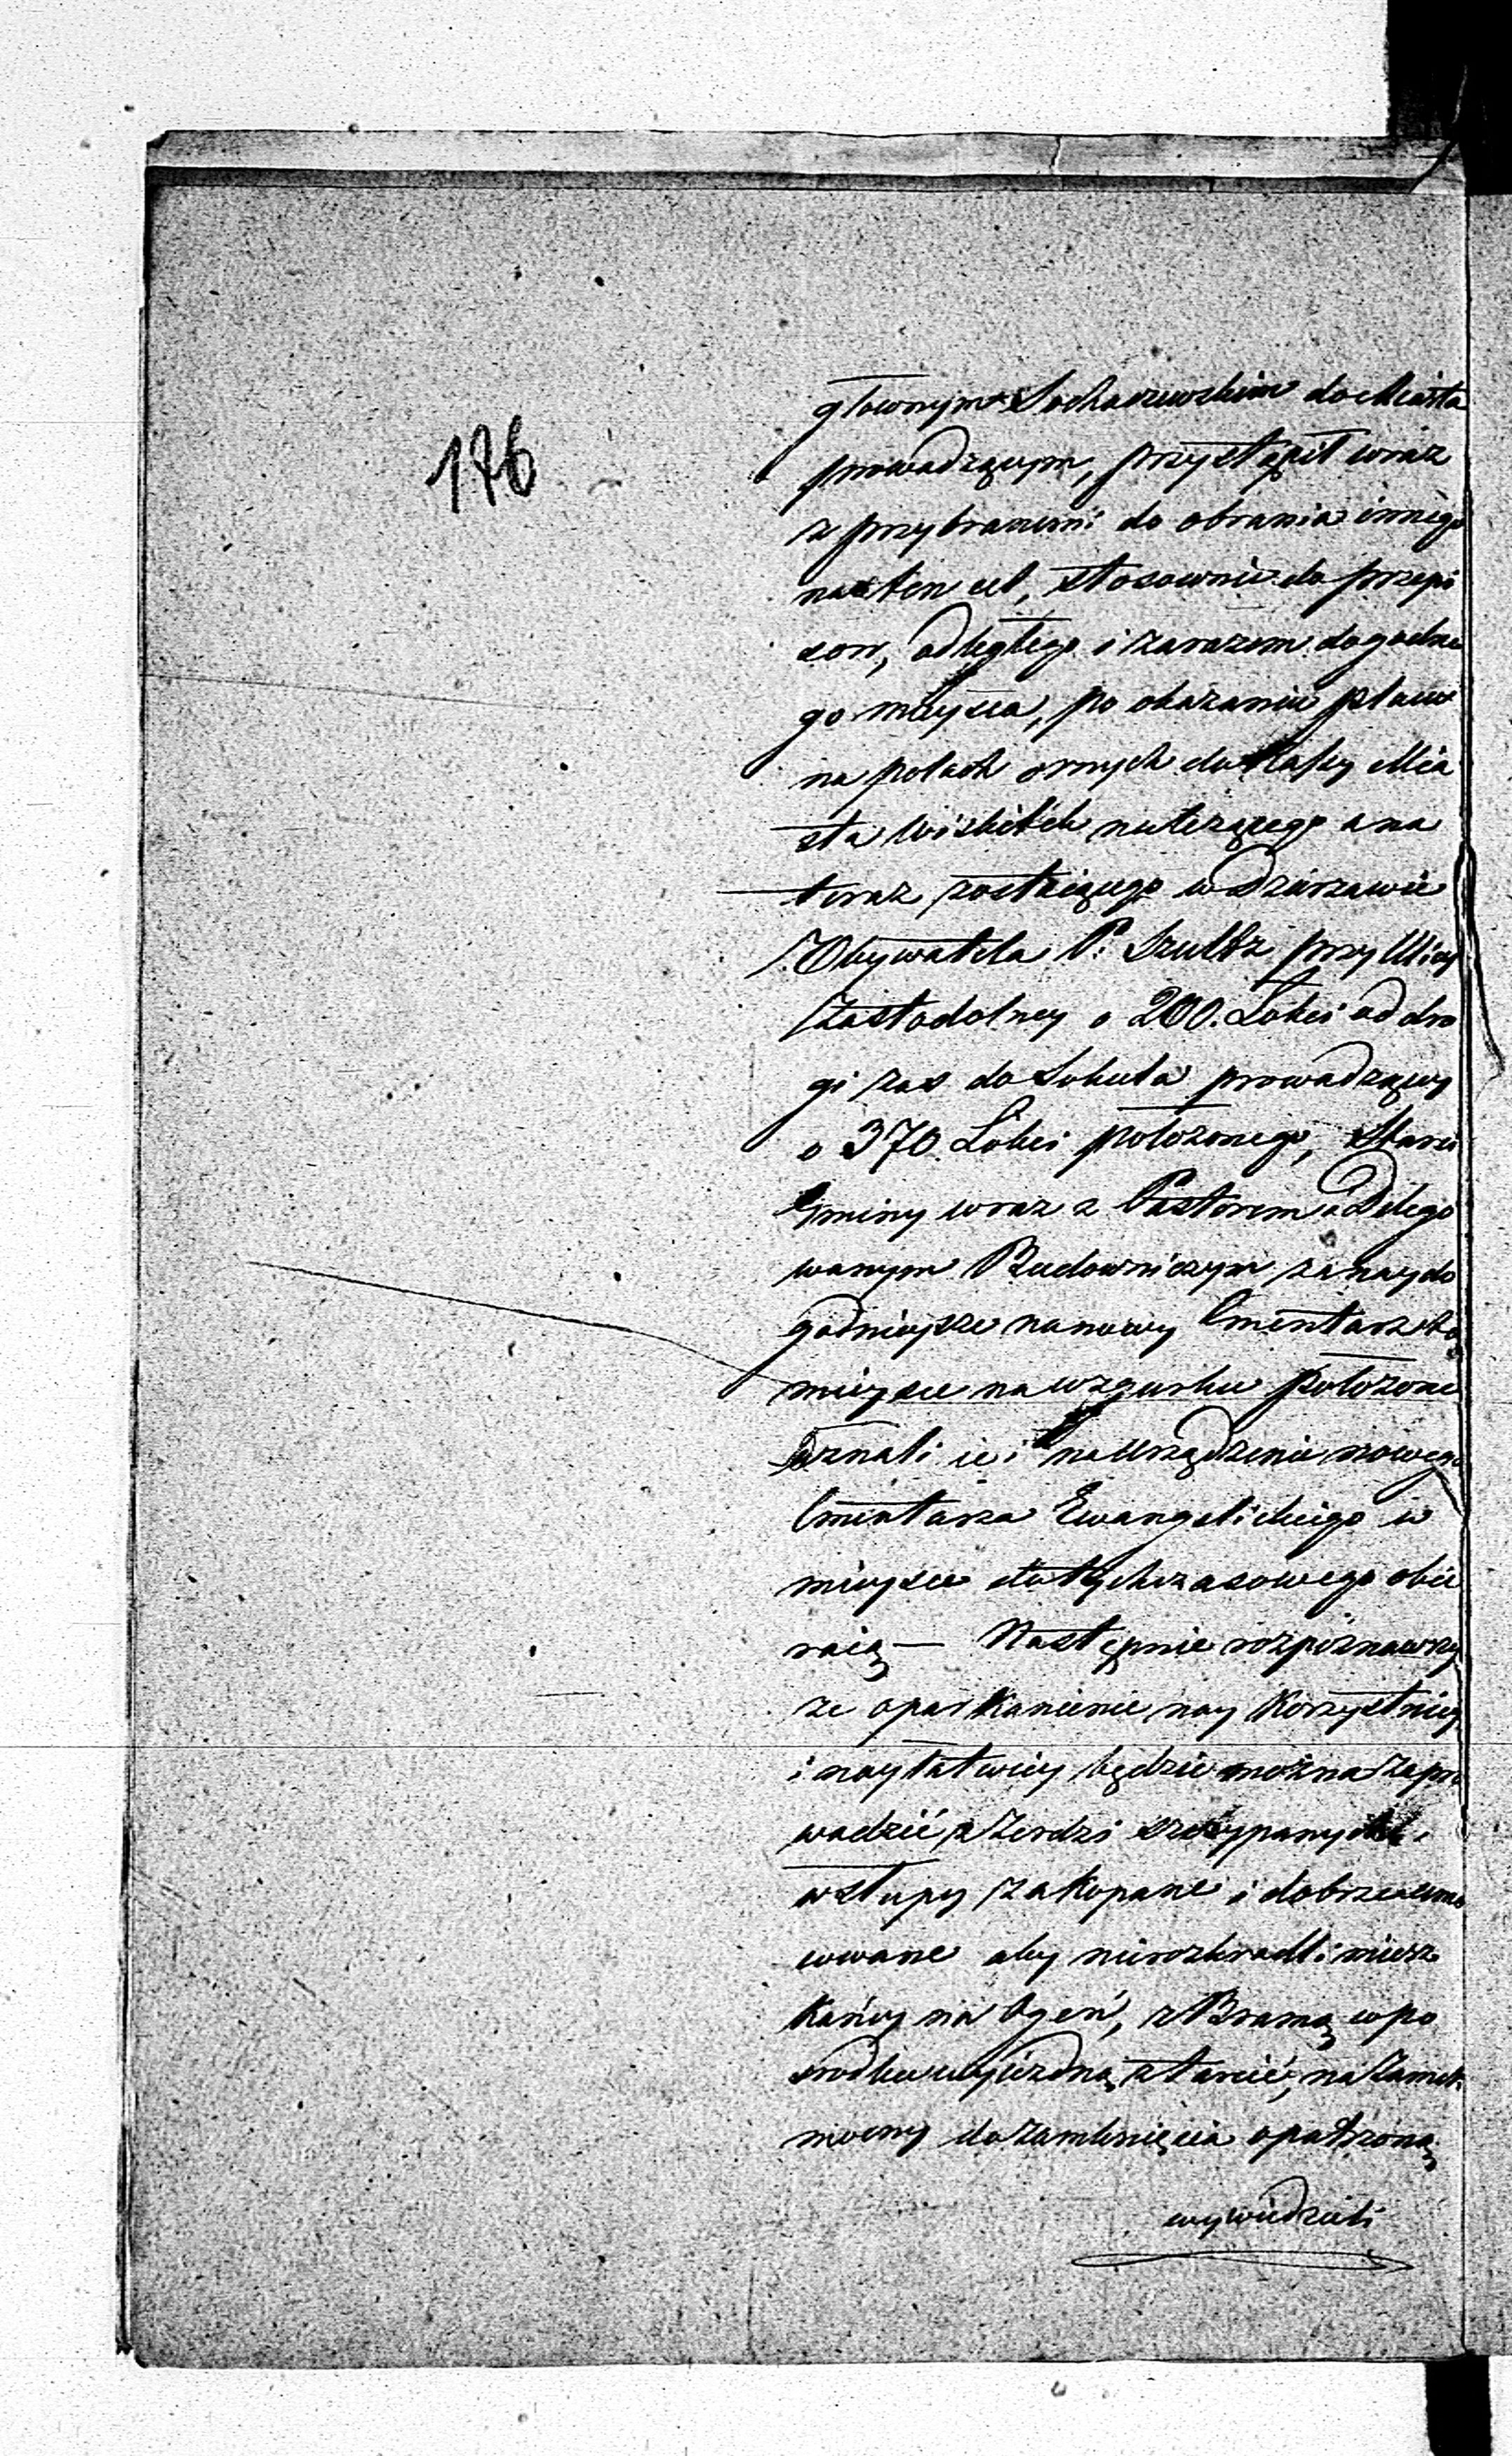 176
głownym Sochaczewskim do Miasta
prowadzącym, przystąpił wraz
z przybranemi do obrania innego
na ten cel, stosownie do przepi
sow, odległego i zarazem dogodne
go mieysca, po okazaniu placu
na polach ornych do Kassy Mia
sta Wiskitek należącego a na
teraz zostaiącego w Dzierzawie
Obywatela P. Szultz przy Ulicy
Zastodolney o 200. Łokci od dro
gi zas do Sokula prowadzącey
o 370 Łokci położonego, Starsi
Gminy wraz z Pastorem i Delego
wanym Budowniczym za naydo
godnieysze na nowy Cmentarz to
mieysce na wzgurku położone
uznali ie i na urządzenie nowego
Cmentarza Ewangelickiego w
mieysce dotychczasowego obie
raią — Następnie rozpoznawszy
ze oparkanienie nay korzystniey
i nayłatwiey będzie można zapro
wadzić z Żerdzi szczypanych
w słupy zakopane i dobrze umo
cowane aby nierozkradli miesz
kańcy na Ogeń, z Bramą w po
srodku wjezdną z tarcic, na Zamek
mocny do zamknięcia opatrzoną
wywiedzieli